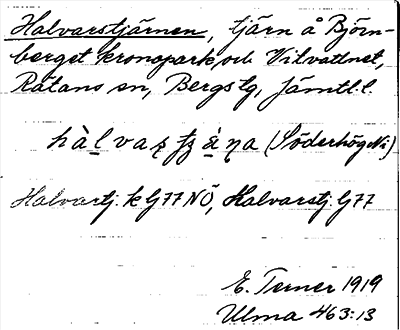 Halvarstjärnen, tjärn å Björn-
berget kronopark och Vilvattnet,
Rätans sn, Bergs tg, Jämtl. l.
(Söderhögen)
Halvarstj. k G77 NÖ, Halvarstj. G77
E. Terner 1919
Ulma 463:13